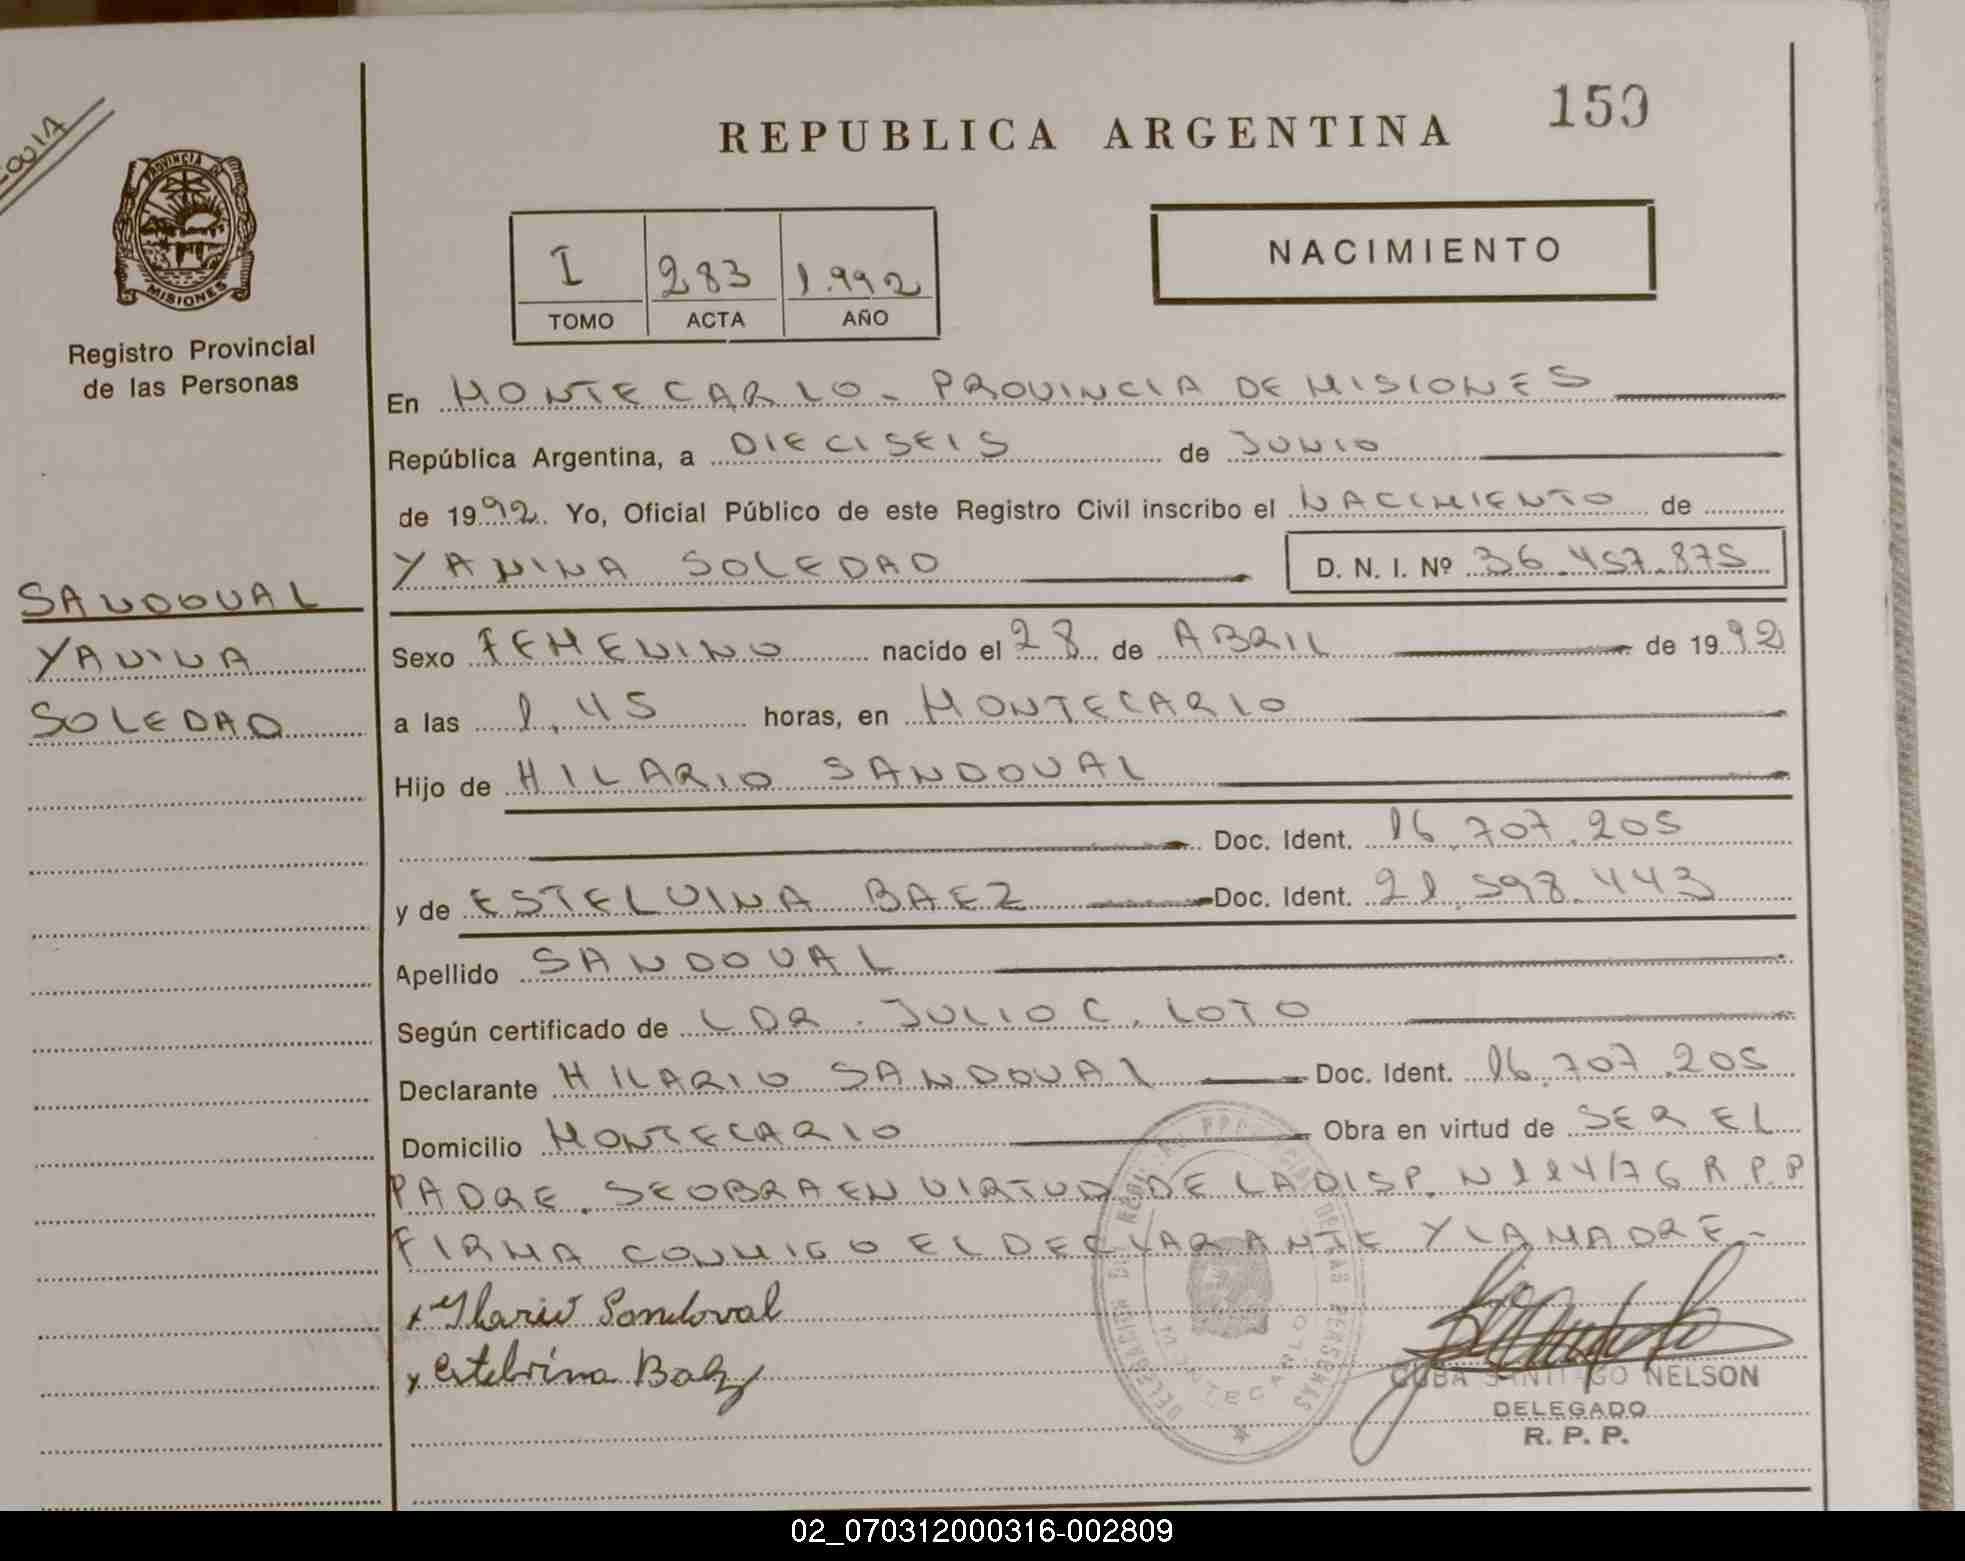 159
REPUBLICA ARGENTINA
PROVINCIA DE
MISIONES
Registro Provincial
de las Personas
NACIMIENTO
I 283 1.992
TOMO ACTA AÑO
En MONTECARLO - PROVINCIA DE MISIONES
República Argentina, a DIECISEIS de JUNIO
de 1992. Yo, Oficial Público de este Registro Civil inscribo el NACIMIENTO de
YANINA SOLEDAD D. N. I. Nº 36.457.875
SANDOVAL
YANINA
SOLEDAD
Sexo FEMENINO nacido el 28 de ABRIL de 1992
a las 1,45 horas, en MONTECARLO
Hijo de HILARIO SANDOVAL
Doc. Ident. 16.707.205
y de ESTELVINA BAEZ Doc. Ident. 21.598.443
Apellido SANDOVAL
Según certificado de LDR. JULIO C. LOTO
Declarante HILARIO SANDOVAL Doc. Ident. 16.707.205
Domicilio MONTECARLO Obra en virtud de SER EL
PADRE. SE OBRA EN VIRTUD DE LA DISP. N 114/76 R.P.P
FIRMA CONMIGO EL DECLARANTE Y LA MADRE.-
x Ilario Sandoval
x Estelvina Baez
DELEGADO
CUBA SANTIAGO NELSON
DELEGADO
R. P. P.
02_070312000316-002809